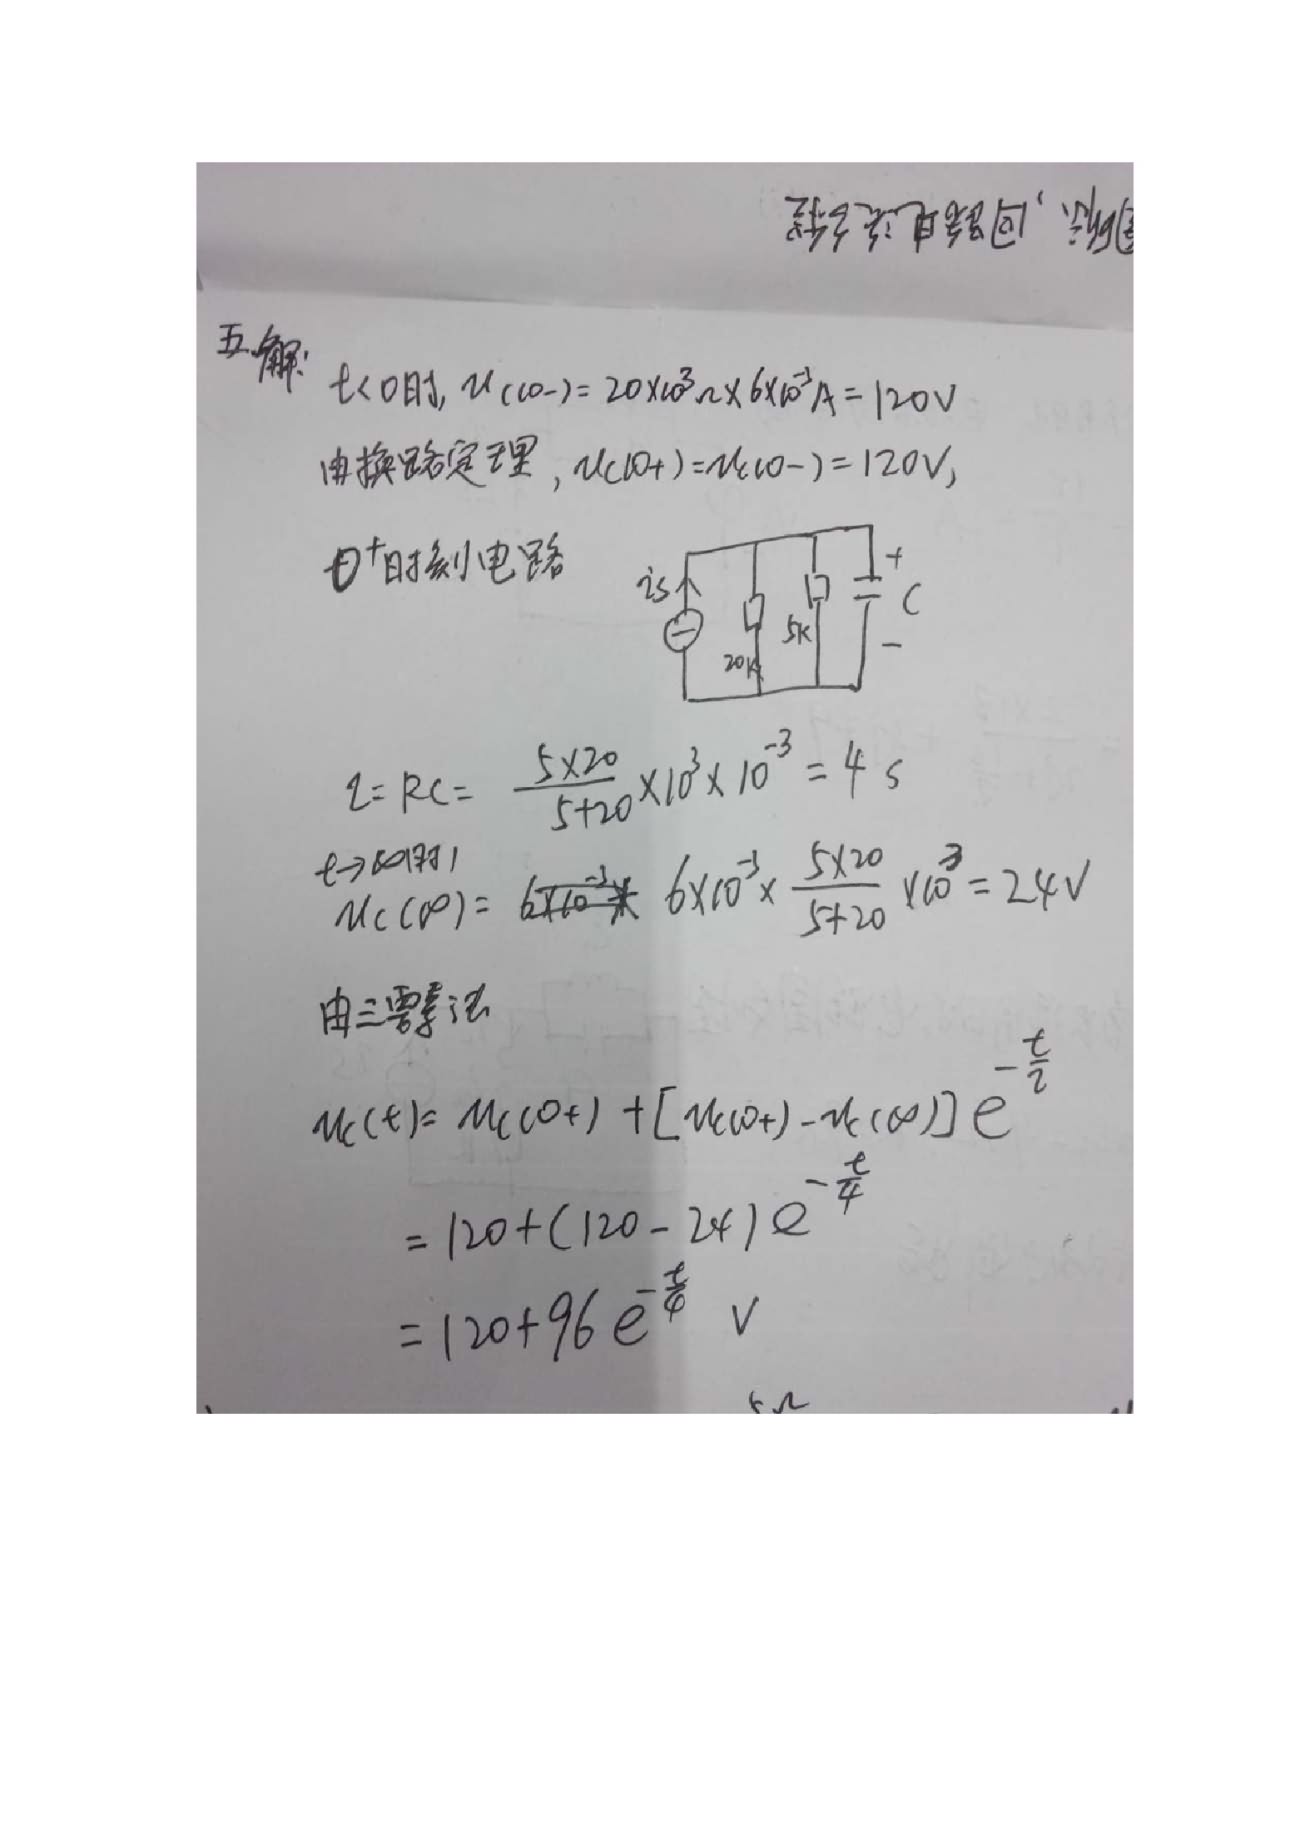 图所示,回路电流方程
五.解:
t<0时, uc(0-)=20×10³Ω×6×10⁻³A=120V
由换路定理, uc(0+)=uc(0-)=120V,
0⁺时刻电路
is
20K
5K
+
C
-
τ=RC= 5×20/5+20 ×10³×10⁻³=4s
t→∞时
uc(∞)= 6×10⁻³× 6×10⁻³× 5×20/5+20 ×10³=24V
由三要素法
uc(t)=uc(0+)+[uc(0+)-uc(∞)]e^-t/τ
=120+(120-24)e^-t/4
=120+96e^-t/4 V
5Ω